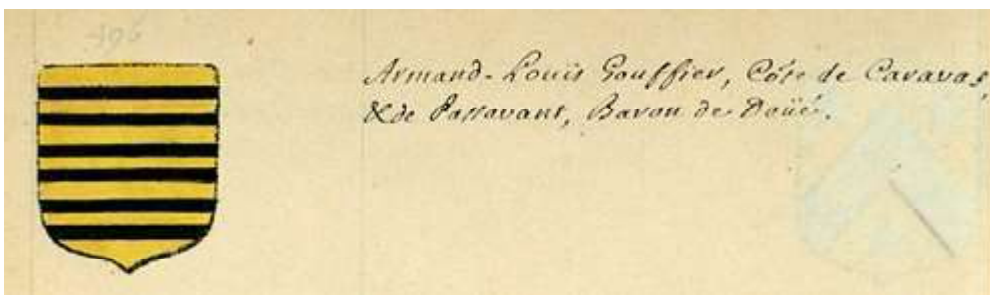 496
Armand-Louis Gouffier, Cõte de Caravas,
& de Passavant, Baron de Doüé.